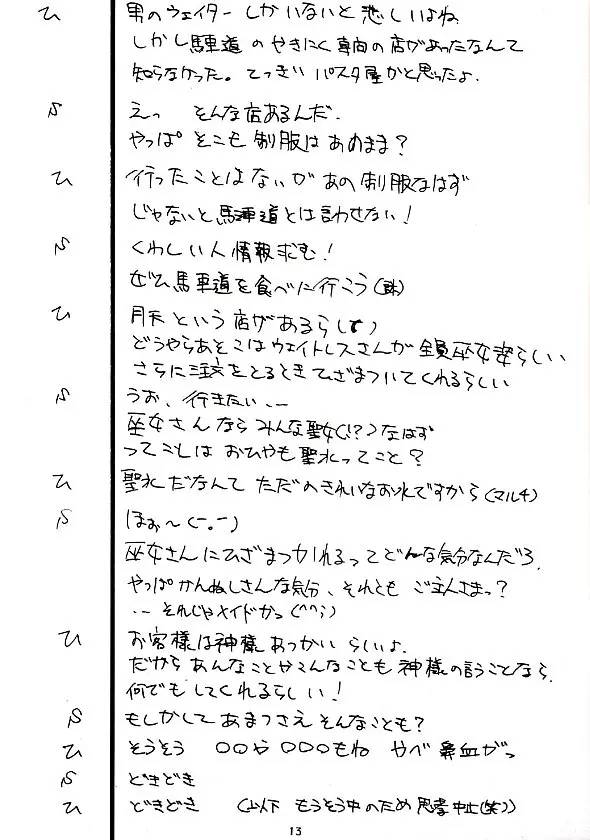 ひ 男のウェイターしかいないと悲しいよね
しかし馬車道のやきにく専向の店があったなんて
知らなかった。てっきりパスタ屋かと思ったよ.
S えっ そんな店あるんだ.
やっぱ そこも制服はあのまま?
ひ 行ったことはないが あの制服なはず
じゃないと馬車道とは言わせない!
S くわしい人情報求む!
ぜひ馬車道を食べに行こう
ひ 月天という店があるらしい
どうやらあそこはウェイトレスさんが全員巫女姿らしい
さらに注文をとるときひざまづいてくれるらしい
S うお、行きたい、--
巫女さんならみんな聖女(!?)なはず
ってことは おひやも聖水ってこと?
ひ 聖水だなんて ただのきれいなお水ですから(マルチ)
S ほぉ~(-。-)
巫女さんにひざまつかれるってどんな気分なんだろ.
やっぱかんぬしさんな気分、それとも ご主人さまっ?
-- それじゃメイドかっ(^^;)
ひ お客様は神様あつかいらしいよ.
だからあんなことやこんなことも神様の言うことなら.
何でもしてくれるらしい!
S もしかしてあまつさえそんなことも?
ひ そうそう ○○や○○○もね やべ鼻血がっ
S どきどき
ひ どきどき (以下 もうそう中のため思考中止(笑))
13